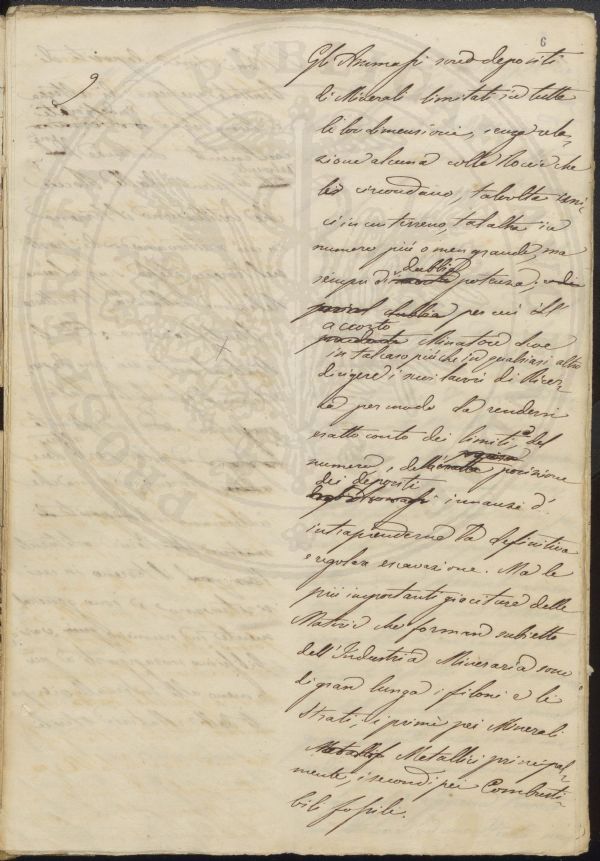 6
9
Gli Ammassi sono depositi
di Minerali limitati in tutte
le lor dimensioni, senza rela-
zione alcuna colle Roccie che
le circondano, talvolta uni-
ci in un terreno, tal altra in
numero più o men grande, ma
sempre di dubbia potenza
dubbia, per cui l'
accorto
prudente Minatore deve
in tal caso più che in qualsiasi altro
dirigere i suoi lavori di Ricer-
ca per modo da rendersi
esatto conto dei limiti, del
numero, della posizione
dei depositi
innanzi d'
intraprenderne la definitiva
e regolare escavazione. Ma le
più importanti giaciture delle
Materie che formano subietto
dell'Industria Mineraria sono
di gran lunga i filoni e li
Strati, i primi pei Minerali
Metallici principal-
mente, i secondi pei Combusti-
bili fossili.